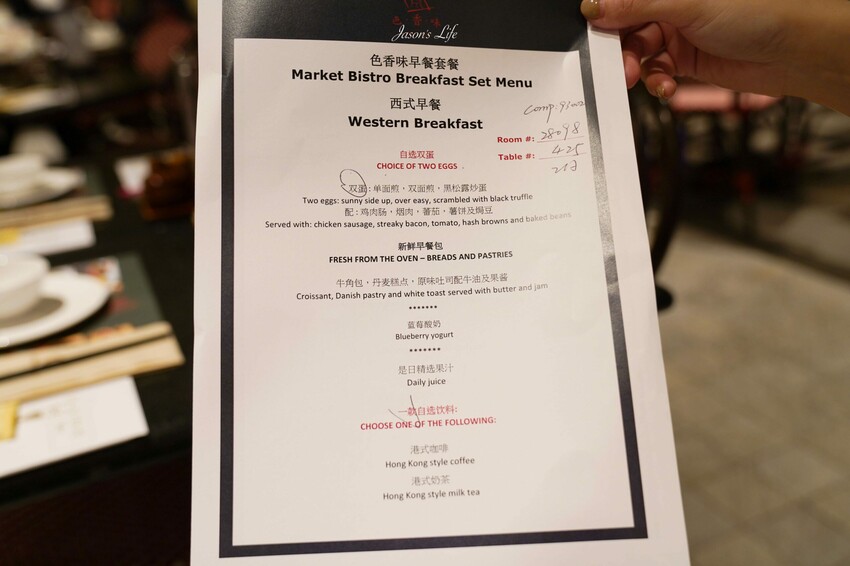 色香味
Jason's Life
色香味早餐套餐
Market Bistro Breakfast Set Menu
西式早餐
Western Breakfast
Room #: 28098
Table #: 425
自选双蛋
CHOICE OF TWO EGGS
双蛋：单面煎，双面煎，黑松露炒蛋
Two eggs: sunny side up, over easy, scrambled with black truffle
配：鸡肉肠，烟肉，蕃茄，薯饼及焗豆
Served with: chicken sausage, streaky bacon, tomato, hash browns and baked beans
新鲜早餐包
FRESH FROM THE OVEN – BREADS AND PASTRIES
牛角包，丹麦糕点，原味吐司配牛油及果酱
Croissant, Danish pastry and white toast served with butter and jam
*******
蓝莓酸奶
Blueberry yogurt
*******
是日精选果汁
Daily juice
一款自选饮料:
CHOOSE ONE OF THE FOLLOWING:
港式咖啡
Hong Kong style coffee
港式奶茶
Hong Kong style milk tea